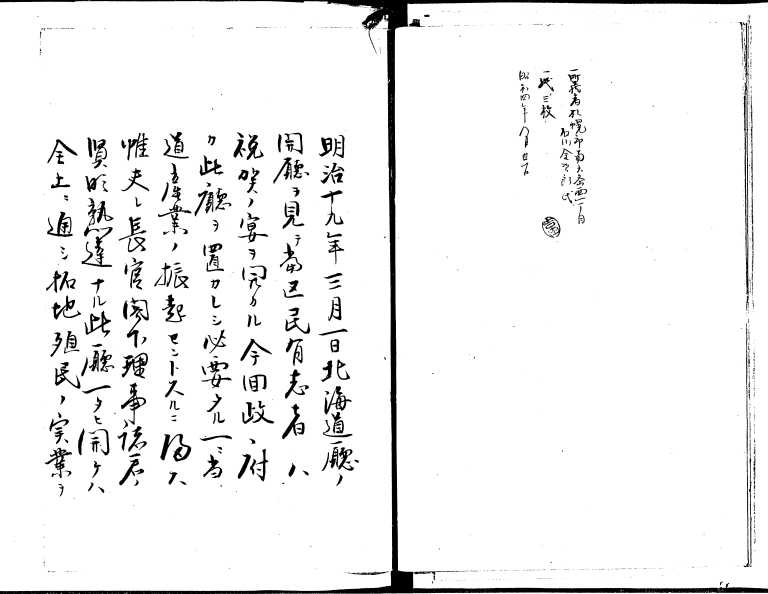 一所蔵者札幌市南六条西一丁目
石川金次郎氏
一成三枚
昭和四年八月廿日
明治十九年三月一日北海道廳ノ
開廳ヲ見テ當区民有志者ハ
祝賀ノ宴ヲ開カル今回政
此廳ヲ置カレシ必要タル一ニ当
道産業ノ振起セントスルニ
惟夫レ長官閣下理事諸君ノ
賢明熟達ナル此廳一タヒ開ケハ
全土ニ通シ拓地殖民ノ実業ヲ